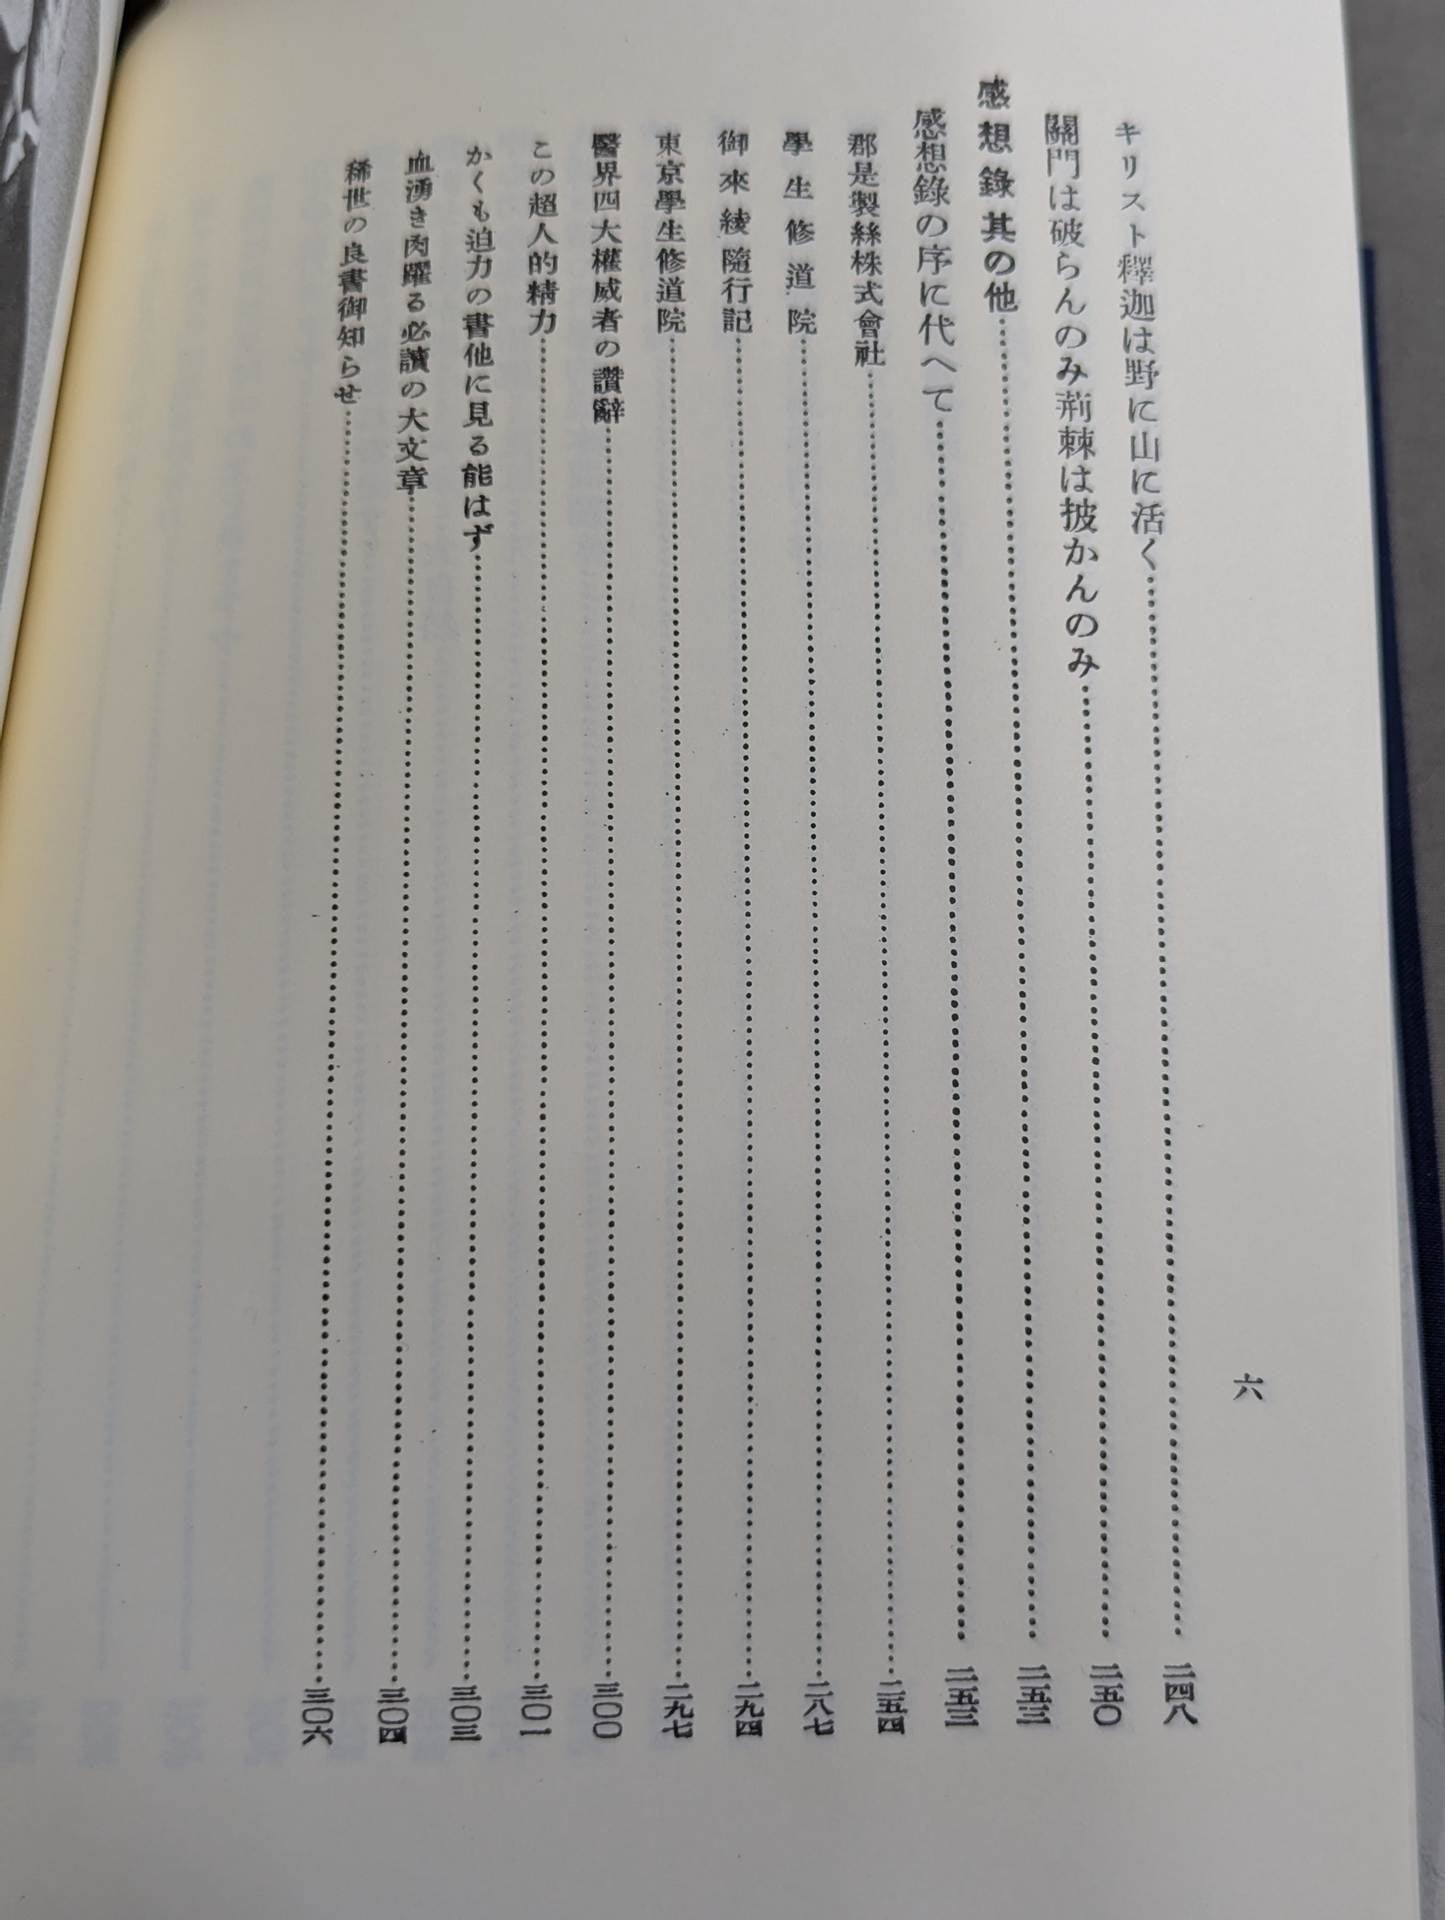 六
キリスト釋迦は野に山に活く……二四八
關門は破らんのみ荊棘は披かんのみ……二五〇
感想錄其の他……二五三
感想錄の序に代へて……二五三
郡是製絲株式會社……二五四
學生修道院……二八七
御來綾隨行記……二九四
東京學生修道院……二九七
醫界四大權威者の讚辭……三〇〇
この超人的精力……三〇一
かくも迫力の書他に見る能はず……三〇三
血湧き肉躍る必讀の大文章……三〇四
稀世の良書御知らせ……三〇六